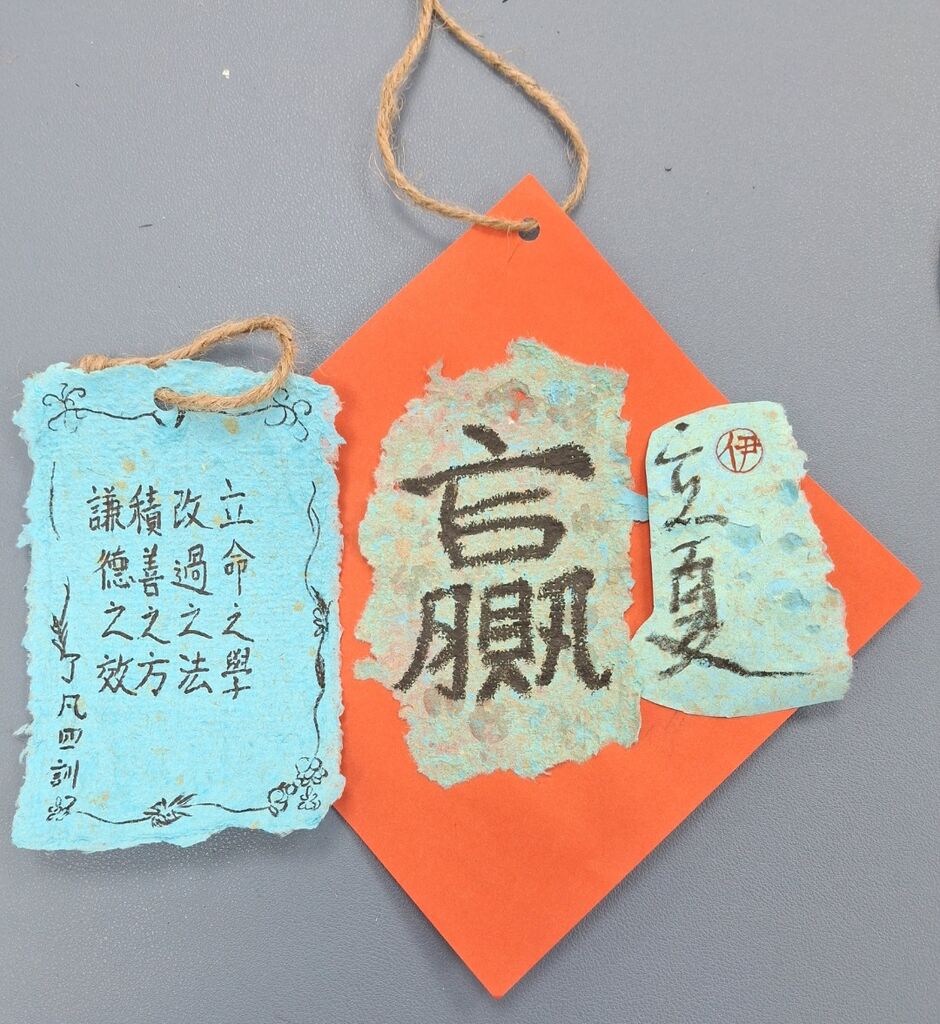 立命之學
改過之法
積善之方
謙德之效
了凡四訓
贏
立夏
伊